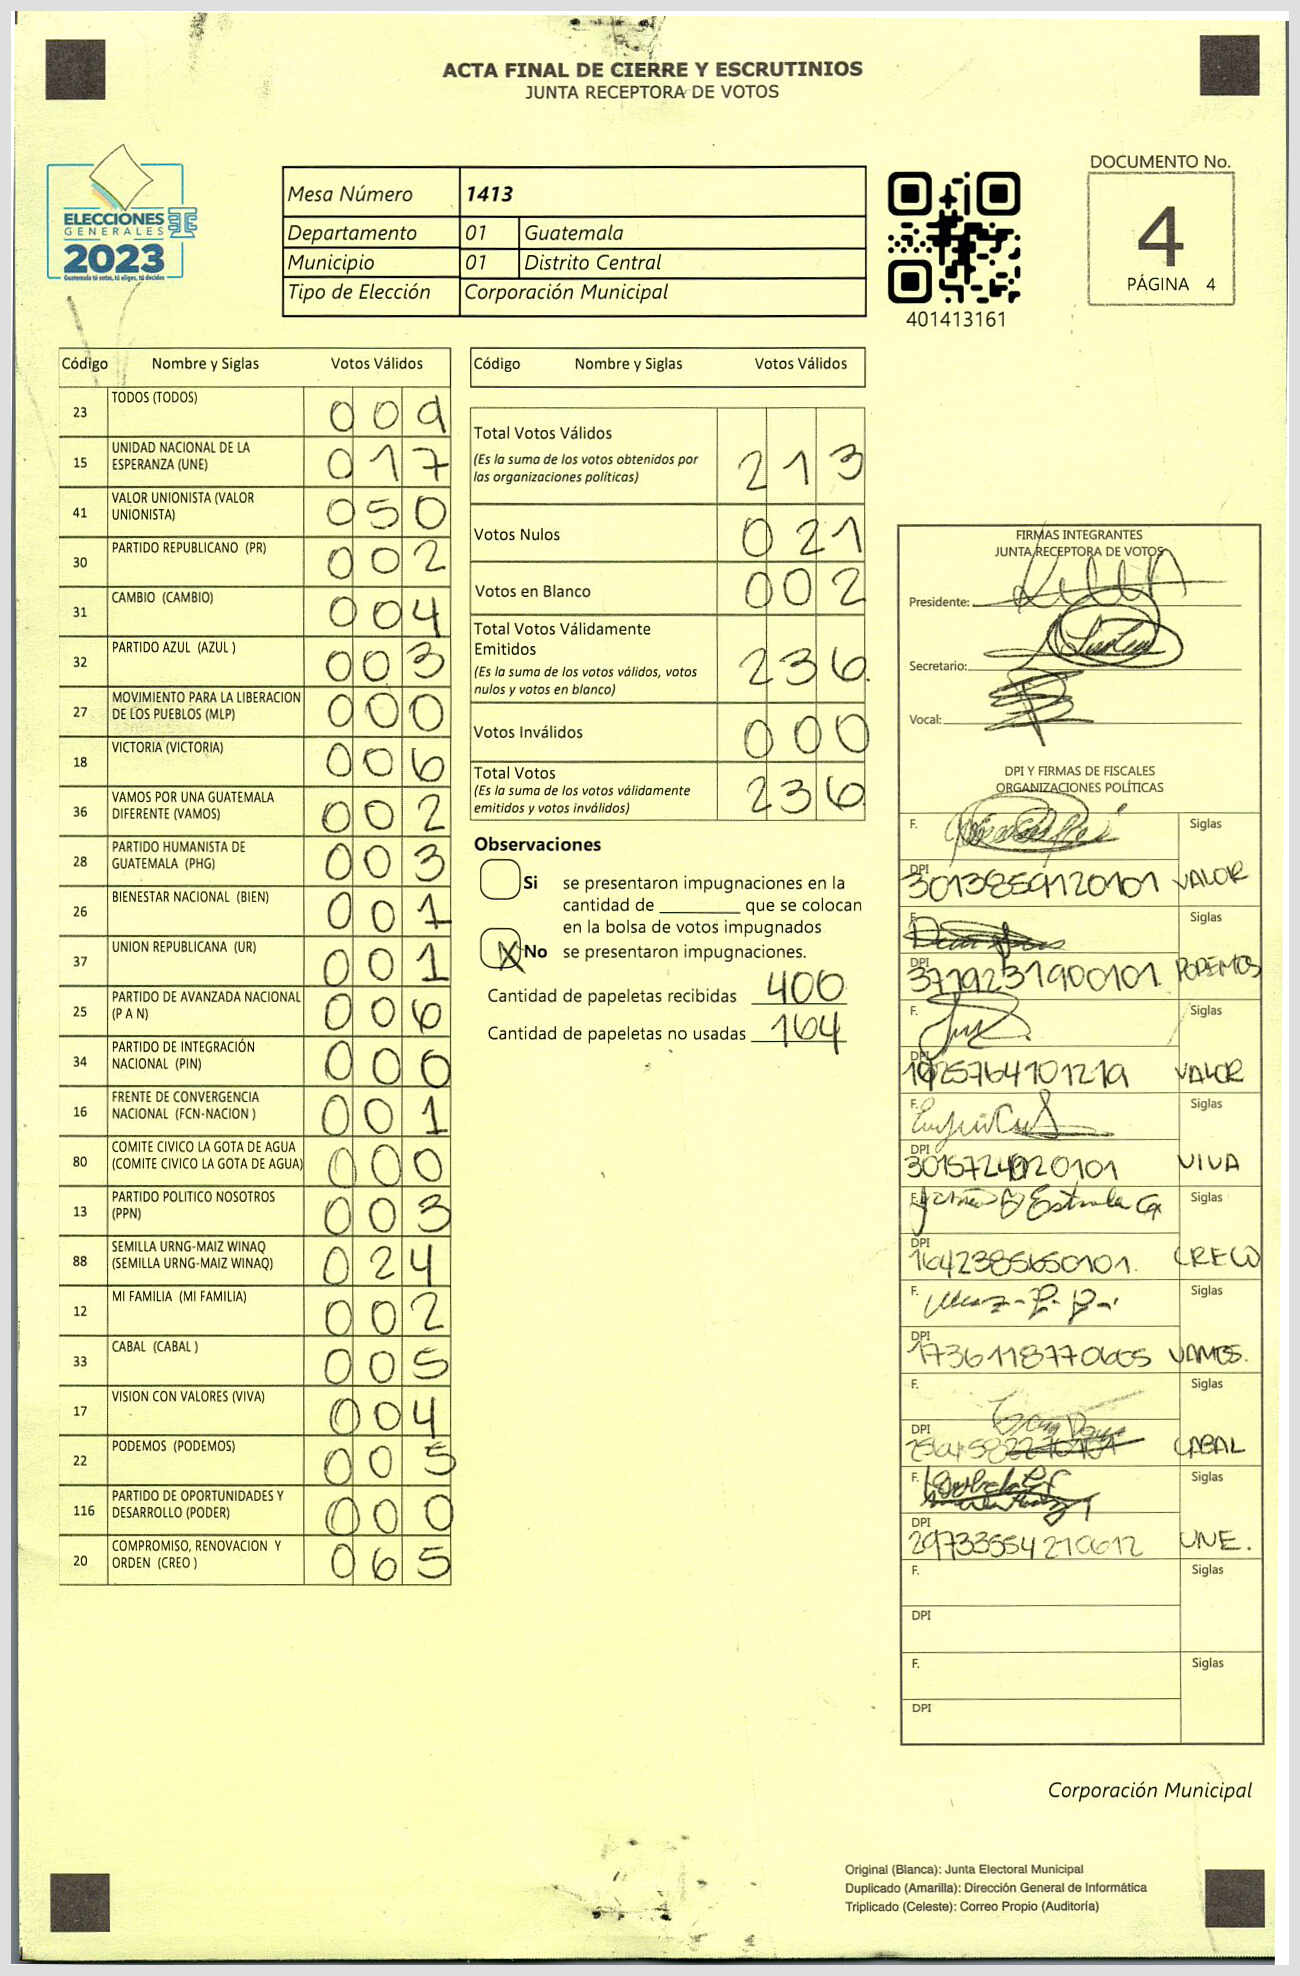 ACTA FINAL DE CIERRE Y ESCRUTINIOS
JUNTA RECEPTORA DE VOTOS
ELECCIONES
GENERALES
2023
Guatemala tú votas, tú eliges, tú decides
Mesa Número 1413
Departamento 01 Guatemala
Municipio 01 Distrito Central
Tipo de Elección Corporación Municipal
401413161
DOCUMENTO No.
4
PÁGINA 4
Código Nombre y Siglas Votos Válidos
23 TODOS (TODOS) 009
15 UNIDAD NACIONAL DE LA
ESPERANZA (UNE) 017
41 VALOR UNIONISTA (VALOR
UNIONISTA) 050
30 PARTIDO REPUBLICANO (PR) 002
31 CAMBIO (CAMBIO) 004
32 PARTIDO AZUL (AZUL ) 003
27 MOVIMIENTO PARA LA LIBERACION
DE LOS PUEBLOS (MLP) 000
18 VICTORIA (VICTORIA) 006
36 VAMOS POR UNA GUATEMALA
DIFERENTE (VAMOS) 002
28 PARTIDO HUMANISTA DE
GUATEMALA (PHG) 003
26 BIENESTAR NACIONAL (BIEN) 001
37 UNION REPUBLICANA (UR) 001
25 PARTIDO DE AVANZADA NACIONAL
(P A N) 006
34 PARTIDO DE INTEGRACIÓN
NACIONAL (PIN) 000
16 FRENTE DE CONVERGENCIA
NACIONAL (FCN-NACION ) 001
80 COMITE CIVICO LA GOTA DE AGUA
(COMITE CIVICO LA GOTA DE AGUA) 000
13 PARTIDO POLITICO NOSOTROS
(PPN) 003
88 SEMILLA URNG-MAIZ WINAQ
(SEMILLA URNG-MAIZ WINAQ) 024
12 MI FAMILIA (MI FAMILIA) 002
33 CABAL (CABAL ) 005
17 VISION CON VALORES (VIVA) 004
22 PODEMOS (PODEMOS) 005
116 PARTIDO DE OPORTUNIDADES Y
DESARROLLO (PODER) 000
20 COMPROMISO, RENOVACION Y
ORDEN (CREO ) 065
Código Nombre y Siglas Votos Válidos
Total Votos Válidos
(Es la suma de los votos obtenidos por
las organizaciones políticas) 213
Votos Nulos 021
Votos en Blanco 002
Total Votos Válidamente
Emitidos
(Es la suma de los votos válidos, votos
nulos y votos en blanco) 236
Votos Inválidos 000
Total Votos
(Es la suma de los votos válidamente
emitidos y votos inválidos) 236
Observaciones
Si se presentaron impugnaciones en la
cantidad de ________ que se colocan
en la bolsa de votos impugnados
X No se presentaron impugnaciones.
Cantidad de papeletas recibidas 400
Cantidad de papeletas no usadas 164
FIRMAS INTEGRANTES
JUNTA RECEPTORA DE VOTOS
Presidente:
Secretario:
Vocal:
DPI Y FIRMAS DE FISCALES
ORGANIZACIONES POLÍTICAS
F. Siglas
DPI 3013859120101 VALOR
F. Siglas
DPI 3719231900101 PODEMOS
F. Siglas
DPI VALOR
F. Siglas
DPI VIVA
F. Siglas
DPI 1642385650101. CREO
F. Siglas
DPI 1736118770605 VAMOS.
F. Siglas
DPI CABAL
F. Siglas
DPI 29733554210612 UNE.
F. Siglas
DPI
F. Siglas
DPI
Corporación Municipal
Original (Blanca): Junta Electoral Municipal
Duplicado (Amarilla): Dirección General de Informática
Triplicado (Celeste): Correo Propio (Auditoría)